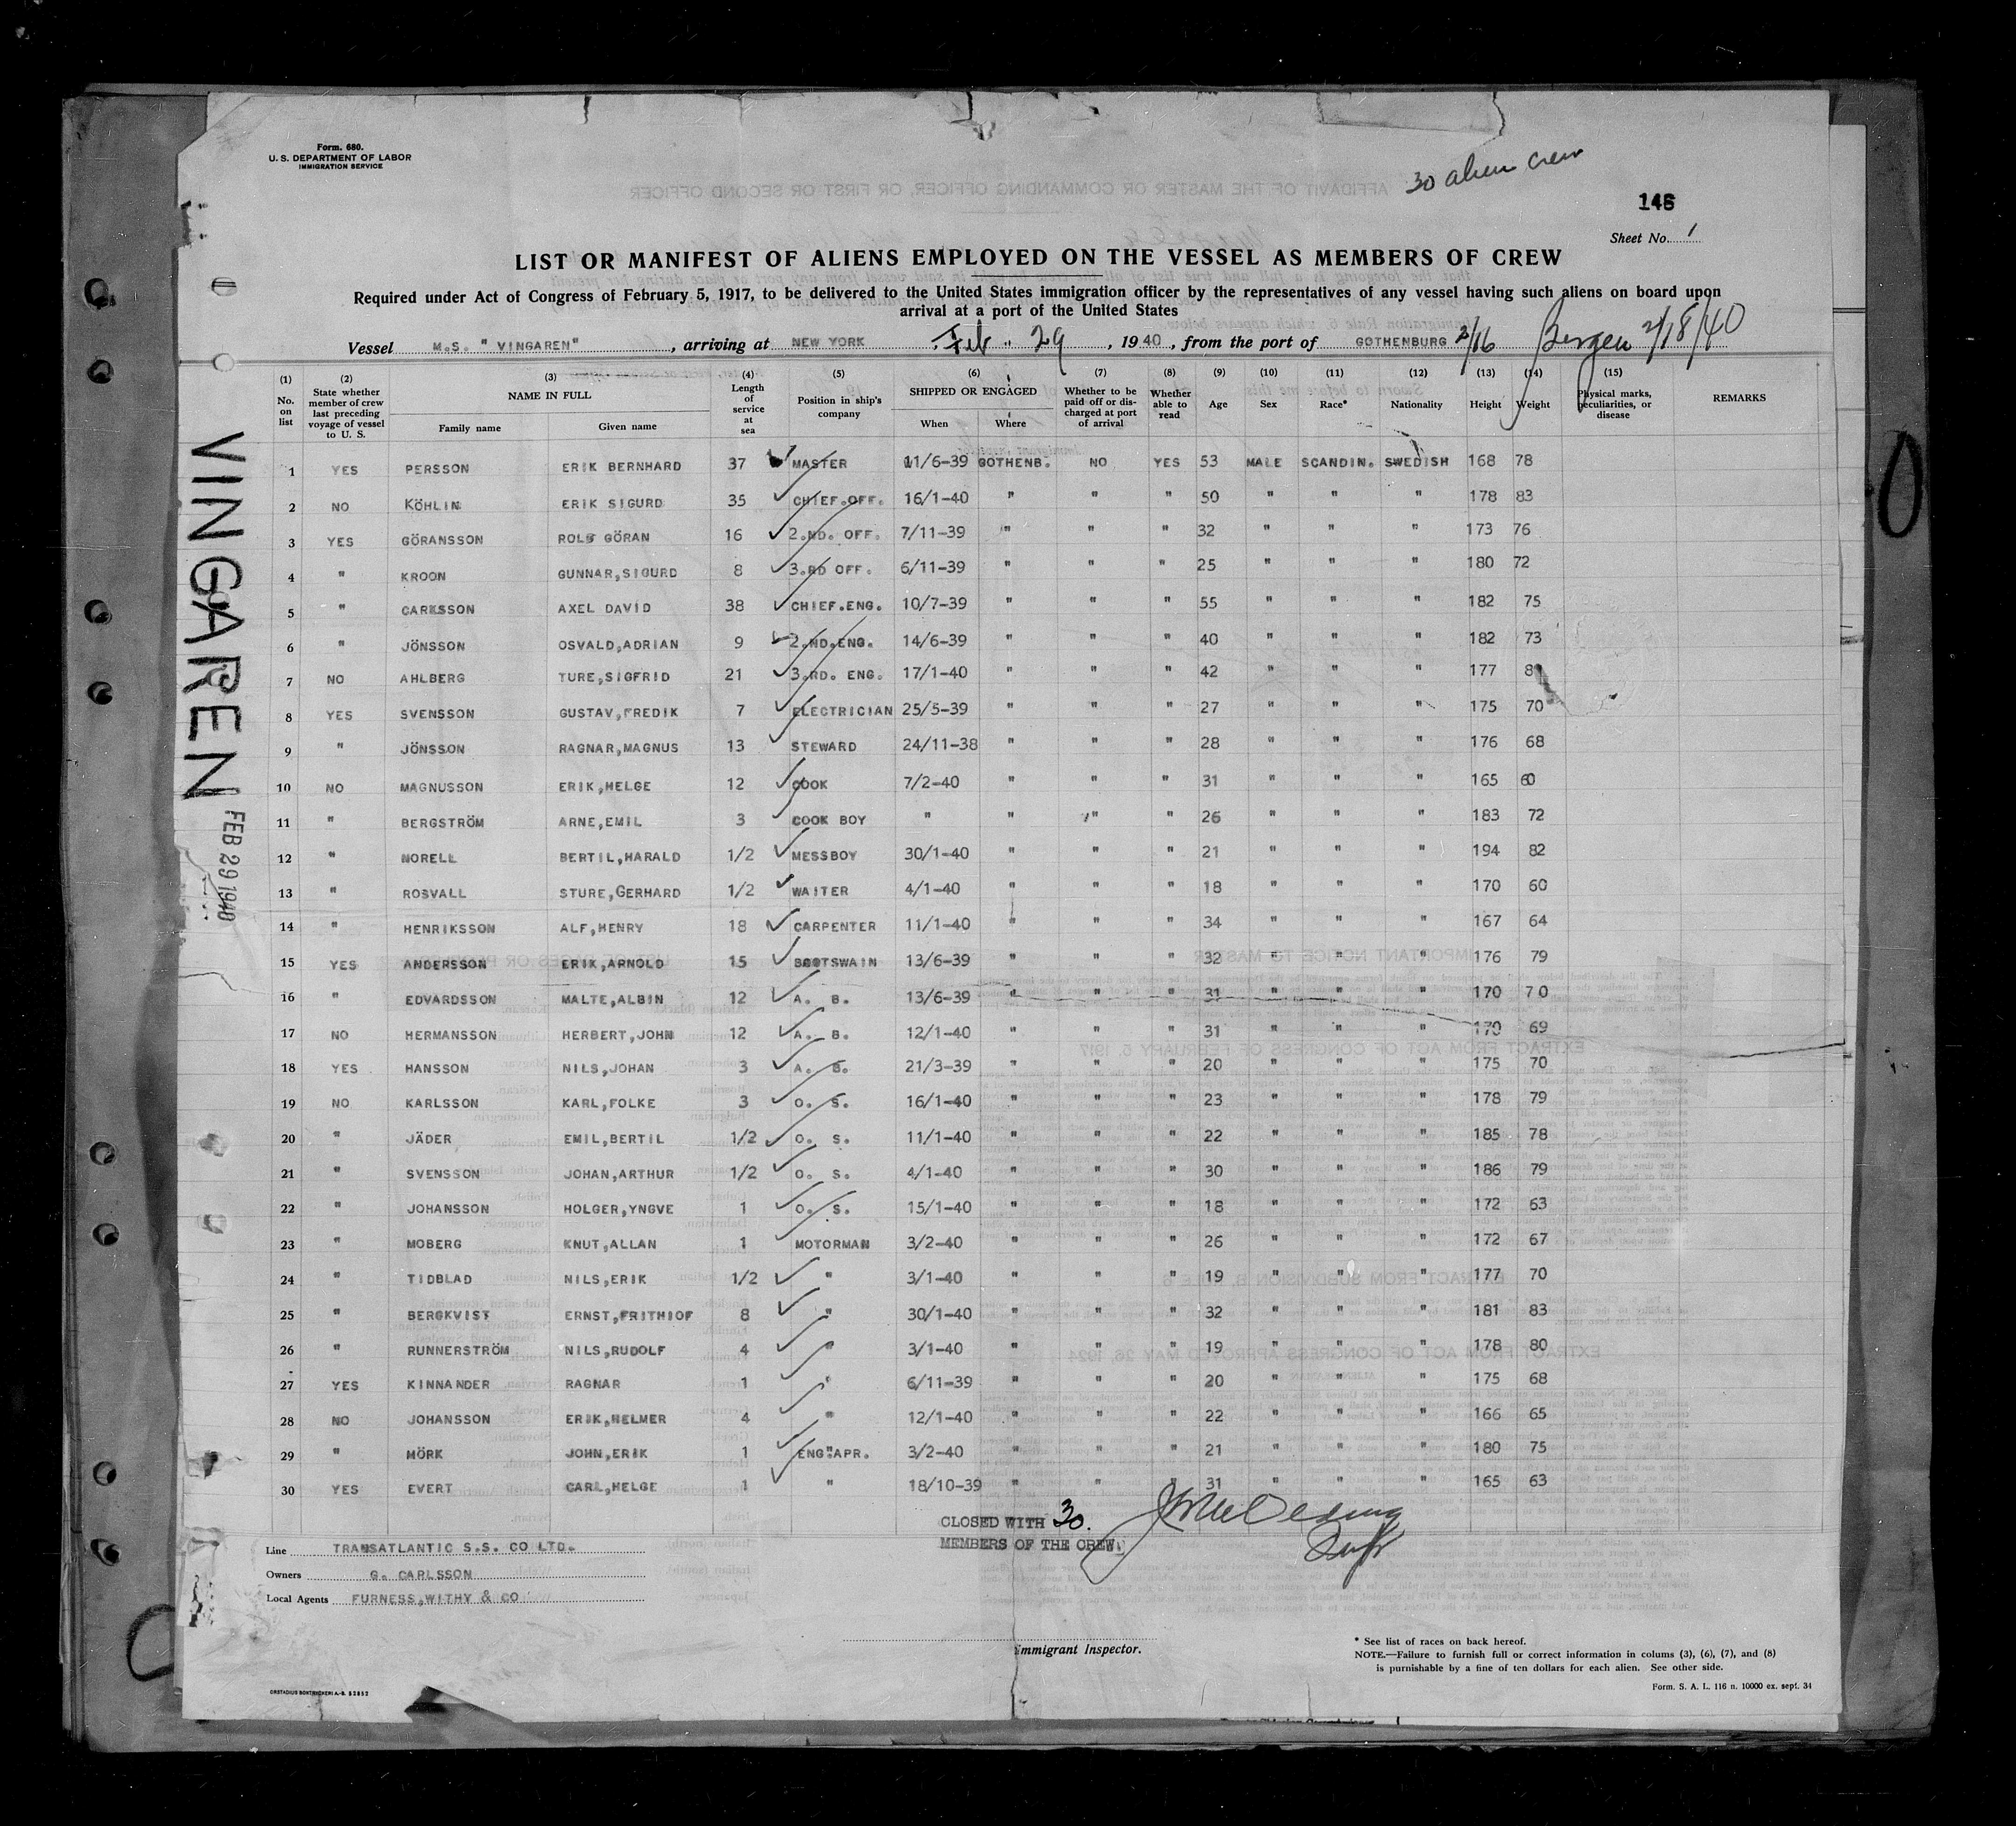 Form. 680.
U. S. DEPARTMENT OF LABOR
IMMIGRATION SERVICE
30 alien crew
146
Sheet No. 1
LIST OR MANIFEST OF ALIENS EMPLOYED ON THE VESSEL AS MEMBERS OF CREW
Required under Act of Congress of February 5, 1917, to be delivered to the United States immigration officer by the representatives of any vessel having such aliens on board upon
arrival at a port of the United States
Vessel M.S. " VINGAREN" , arriving at NEW YORK Feb. 29 , 1940 , from the port of GOTHENBURG 2/16 Bergen 2/18/40
(1) No. on list (2) State whether member of crew last preceding voyage of vessel to U. S. (3) NAME IN FULL Family name Given name (4) Length of service at sea (5) Position in ship's company (6) SHIPPED OR ENGAGED When Where (7) Whether to be paid off or discharged at port of arrival (8) Whether able to read (9) Age (10) Sex (11) Race* (12) Nationality (13) Height (14) Weight (15) Physical marks, peculiarities, or disease REMARKS
1 YES PERSSON ERIK BERNHARD 37 MASTER 11/6-39 GOTHENB. NO YES 53 MALE SCANDIN. SWEDISH 168 78
2 NO KÖHLIN ERIK SIGURD 35 CHIEF.OFF. 16/1-40 " " " 50 " " " 178 83
3 YES GÖRANSSON ROLF GÖRAN 16 2.ND. OFF. 7/11-39 " " " 32 " " " 173 76
4 " KROON GUNNAR,SIGURD 8 3.RD OFF. 6/11-39 " " " 25 " " " 180 72
5 " CARLSSON AXEL DAVID 38 CHIEF.ENG. 10/7-39 " " " 55 " " " 182 75
6 " JÖNSSON OSVALD,ADRIAN 9 2.ND.ENG. 14/6-39 " " " 40 " " " 182 73
7 NO AHLBERG TURE,SIGFRID 21 3.RD. ENG. 17/1-40 " " " 42 " " " 177 81
8 YES SVENSSON GUSTAV,FREDIK 7 ELECTRICIAN 25/5-39 " " " 27 " " " 175 70
9 " JÖNSSON RAGNAR,MAGNUS 13 STEWARD 24/11-38 " " " 28 " " " 176 68
10 NO MAGNUSSON ERIK,HELGE 12 COOK 7/2-40 " " " 31 " " " 165 60
11 " BERGSTRÖM ARNE,EMIL 3 COOK BOY " " " " 26 " " " 183 72
12 " NORELL BERTIL,HARALD 1/2 MESSBOY 30/1-40 " " " 21 " " " 194 82
13 " ROSVALL STURE,GERHARD 1/2 WAITER 4/1-40 " " " 18 " " " 170 60
14 " HENRIKSSON ALF,HENRY 18 CARPENTER 11/1-40 " " " 34 " " " 167 64
15 YES ANDERSSON ERIK,ARNOLD 15 BOOTSWAIN 13/6-39 " " " 32 " " " 176 79
16 " EDVARDSSON MALTE,ALBIN 12 A. B. 13/6-39 " " " 31 " " " 170 70
17 NO HERMANSSON HERBERT,JOHN 12 A. B. 12/1-40 " " " 31 " " " 170 69
18 YES HANSSON NILS,JOHAN 3 A. B. 21/3-39 " " " 20 " " " 175 70
19 NO KARLSSON KARL,FOLKE 3 O. S. 16/1-40 " " " 23 " " " 178 79
20 " JÄDER EMIL,BERTIL 1/2 O. S. 11/1-40 " " " 22 " " " 185 78
21 " SVENSSON JOHAN,ARTHUR 1/2 O. S. 4/1-40 " " " 30 " " " 186 79
22 " JOHANSSON HOLGER,YNGVE 1 O. S. 15/1-40 " " " 18 " " " 172 63
23 " MOBERG KNUT,ALLAN 1 MOTORMAN 3/2-40 " " " 26 " " " 172 67
24 " TIDBLAD NILS,ERIK 1/2 " 3/1-40 " " " 19 " " " 177 70
25 " BERGKVIST ERNST,FRITHIOF 8 " 30/1-40 " " " 32 " " " 181 83
26 " RUNNERSTRÖM NILS,RUDOLF 4 " 3/1-40 " " " 19 " " " 178 80
27 YES KINNANDER RAGNAR 1 " 6/11-39 " " " 20 " " " 175 68
28 NO JOHANSSON ERIK,HELMER 4 " 12/1-40 " " " 22 " " " 166 65
29 " MÖRK JOHN,ERIK 1 ENG.APR. 3/2-40 " " " 21 " " " 180 75
30 YES EVERT CARL,HELGE 1 " 18/10-39 " " " 31 " " " 165 63
VINGAREN
FEB 29 1940
CLOSED WITH 30.
MEMBERS OF THE CREW.
Line TRANSATLANTIC S.S. CO LTD.
Owners G. CARLSSON
Local Agents FURNESS,WITHY & CO
Immigrant Inspector.
* See list of races on back hereof.
NOTE.—Failure to furnish full or correct information in colums (3), (6), (7), and (8)
is purnishable by a fine of ten dollars for each alien. See other side.
Form. S. A. L. 116 n. 10000 ex. sept. 34
ORSTADIUS BOKTRYCKERI A.-B. 52852